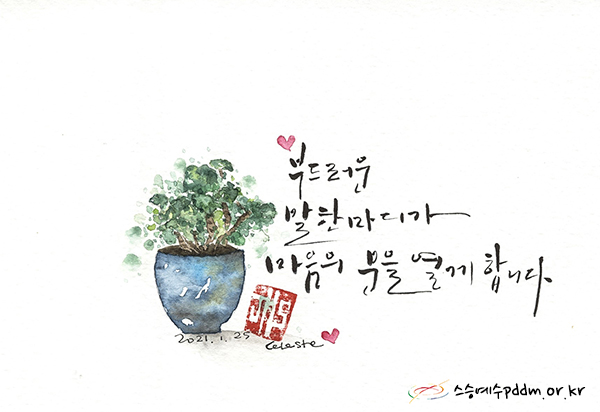 부드러운
말한마디가
마음의 문을 열게 합니다.
2021. 1. 25
Celeste
스승예수pddm.or.kr